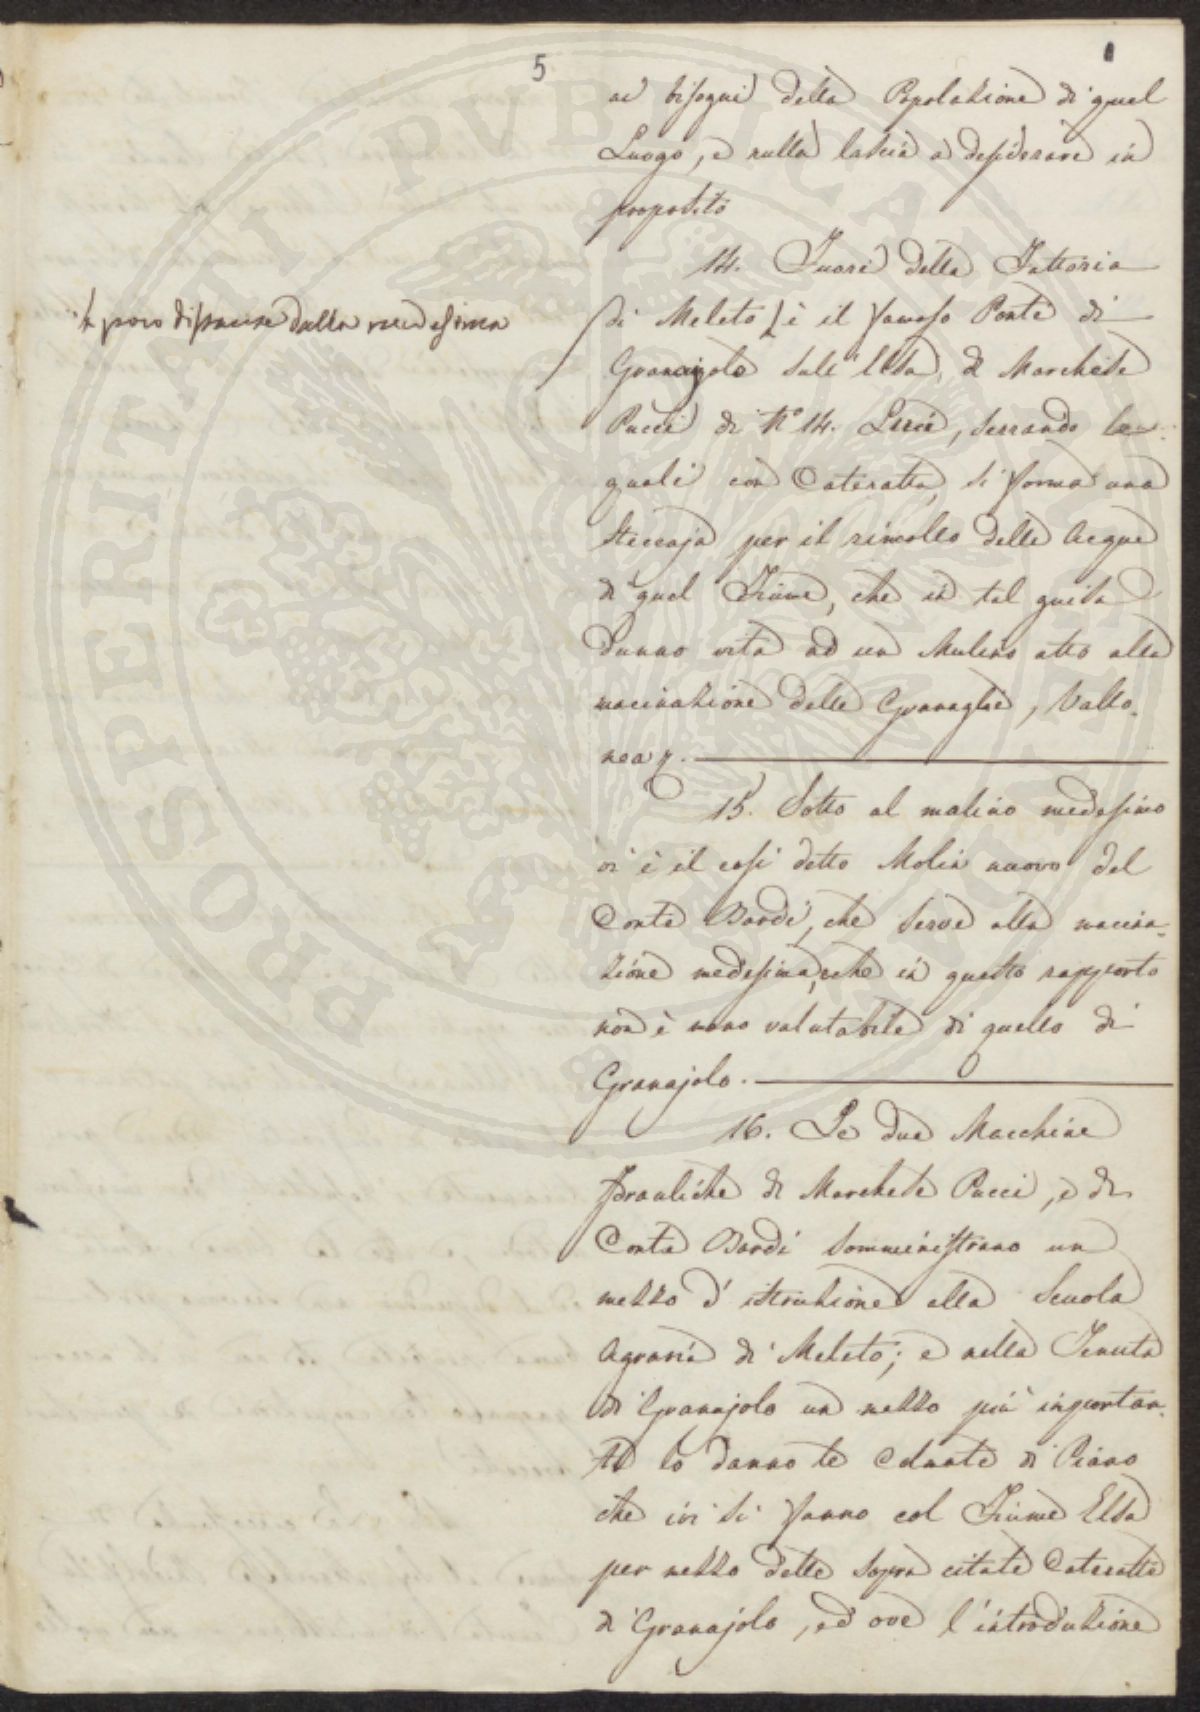 5
ai bisogni della Popolazione di quel
Luogo, e nulla lascia a desiderare in
proposito
14. Fuori della Fattoria
a poco distanza dalla medesima
di Meleto è il famoso Ponte di
Granajolo sull'Elsa, di Marchese
Pucci di N.º 14. Luci, serrando le
quali con Cateratta, si forma una
Steccaja per il rincollo delle Acque
di quel Fiume, che in tal guisa
danno vita ad un Mulino atto alla
macinazione delle Granaglie, Vallo-
nea
15. Sotto al molino medesimo
vi è il così detto Molin nuovo del
Conte Bardi, che serve alla macina-
zione medesima, che in questo rapporto
non è meno valutabile di quello di
Granajolo.
16. Le due Macchine
Idrauliche di Marchese Pucci, e di
Conte Bardi somministrano un
mezzo d'istruzione alla Scuola
Agraria di Meleto; e nella Tenuta
di Granajolo un mezzo più importan-
te lo danno le Colmate di Piano
che ivi si fanno col Fiume Elsa
per mezzo delle sopra citate Cateratte
di Granajolo, ed ove l'introduzione
PROSPERITATI PVBLICAE